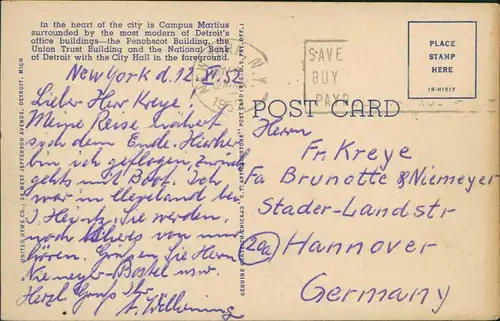 In the heart of the city is Campus Martius
surrounded by the most modern of Detroit's
office buildings—the Penobscot Building, the
Union Trust Building and the National Bank
of Detroit with the City Hall in the foreground.
New York d. 12. XI. 52
Lieber Herr Kreye!
Meine Reise nähert
sich dem Ende. Hierher
bin ich geflogen, zurück
gehts mit Boot. Ich
war in Cleveland bei
J. Sie werden
noch von mir
hören. Grüßen Sie Herrn
Niemeyer-Bostel usw.
Herzl Gruß Ihr
UNITED NEWS CO., 24 WEST JEFFERSON AVENUE, DETROIT, MICH
NEW YORK, N.Y.
1952
SAVE
BUY
PAYR
PLACE
STAMP
HERE
1B-H1517
POST CARD
Herrn
Fr. Kreye
Fa Brunotte & Niemeyer
Stader-Landstr
20a Hannover
Germany